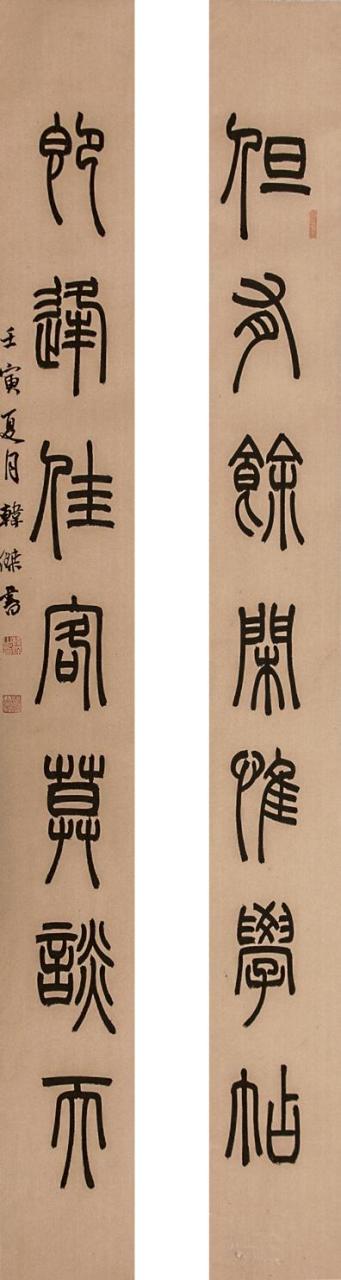 但有餘閑惟學帖
即逢佳客莫談天
壬寅夏月韓傑書